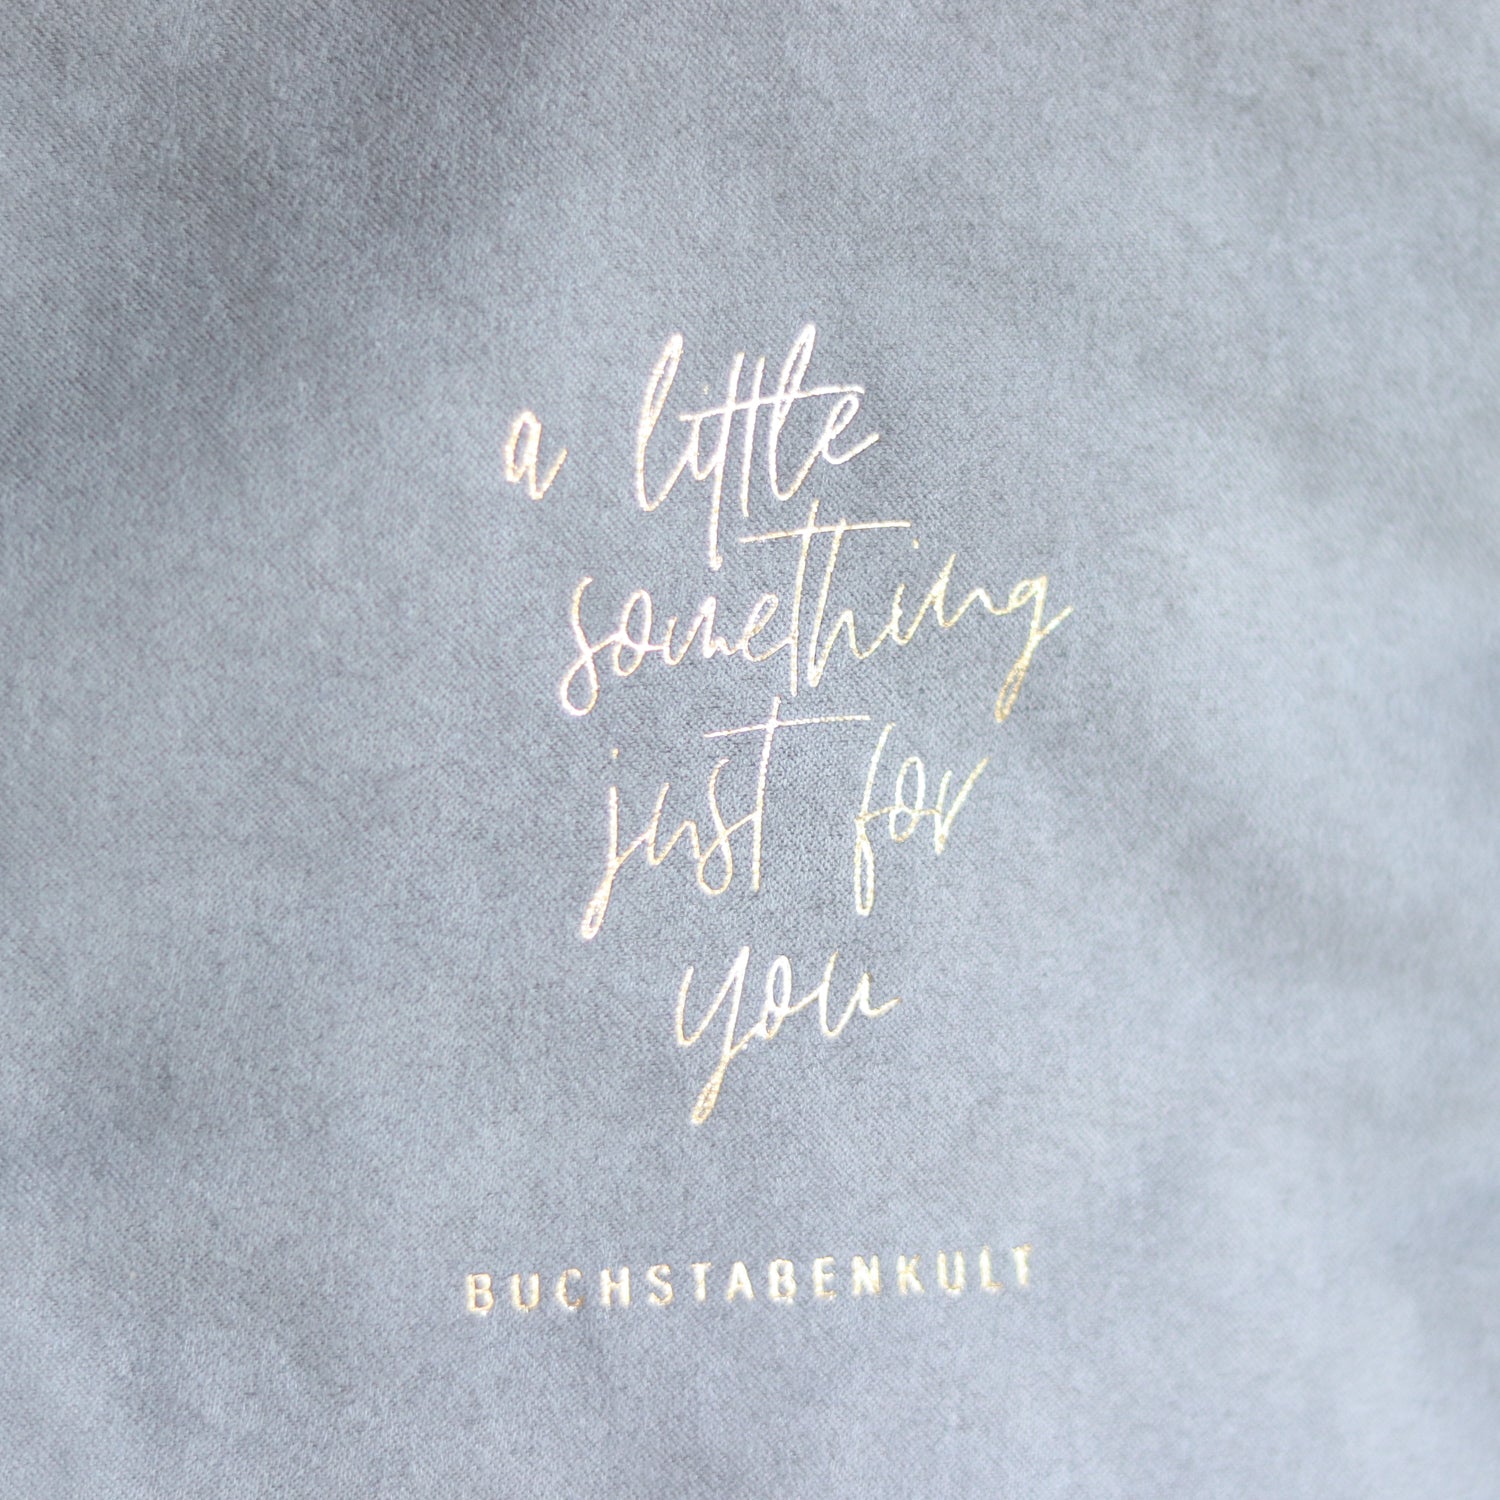 a little
something
just for
you
BUCHSTABENKULT